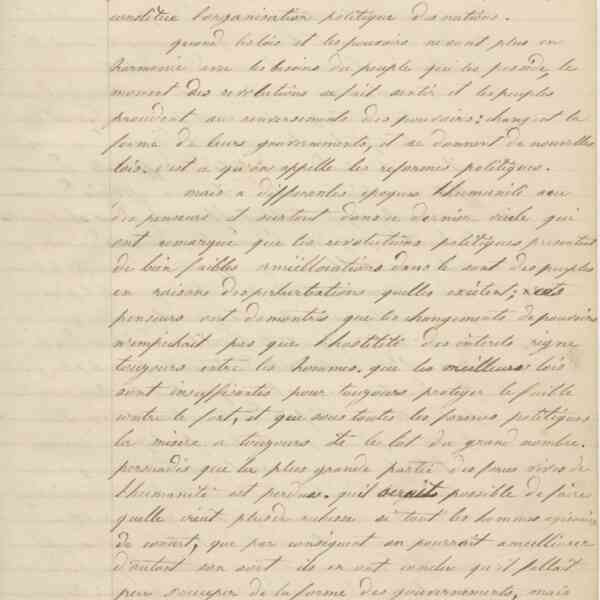 constitue l'organisation politique des nations.
quand les lois et les pouvoirs ne sont plus en
harmonie avec les besoins du peuple qui les possède, le
moment des revolutions se fait sentir et les peuples
procedent au renversements des pouvoirs: changent la
forme de leurs gouvernements, et se donnent de nouvelles
lois. c'est ce qu'on appelle les réformes politiques.
mais a differentes epoques l'humanité a eu
des penseurs et surtout dans ce dernier siècle qui
ont remarqué que les revolutions politiques presentent
de bien faibles améliorations dans le sort des peuples
en raisons des perturbations quelles existent; ces
penseurs ont demontrés que les changements de pouvoirs
n'empechait pas que l'hostilité des interets regne
toujours entre les hommes. que les meilleures lois
sont insuffisantes pour toujours proteger le faible
contre le fort, et que sous toutes les formes politiques
la misère a toujours été le lot du grand nombre.
persuadés que la plus grande partie des forces vives de
l'humanité est perdue. qu'il serait possible de faire
quelle vient plus de richesse si tout les hommes agissaient
de concert, que par consequent on pourrait ameliorer
d'autant son sort ils en ont conclu qu'il fallait
peu s'occuper de la forme des gouvernements, mais